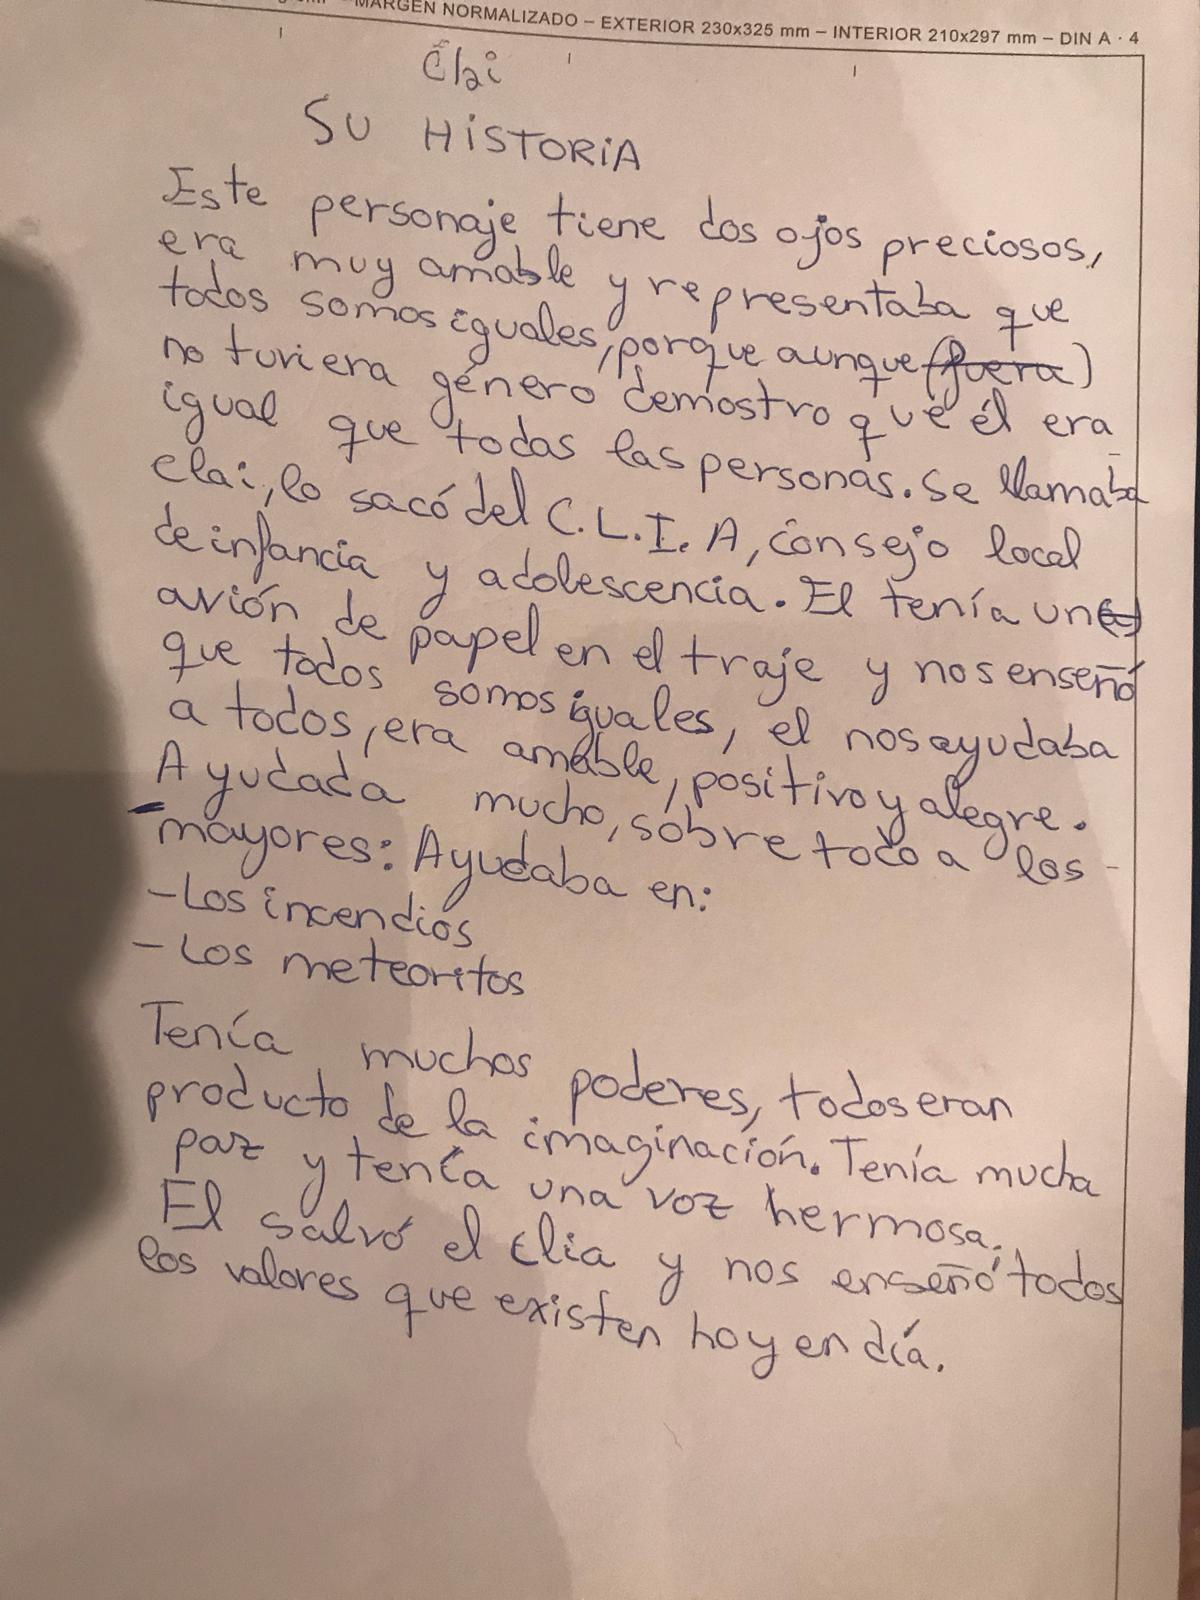 MARGEN NORMALIZADO – EXTERIOR 230x325 mm – INTERIOR 210x297 mm – DIN A · 4
SU HiSTORiA
Este personaje tiene dos ojos preciosos,
era muy amable y representaba que
todos somos iguales, porque aunque (fuera)
no tuviera género demostro que él era
igual que todas las personas. Se llamaba
clai, lo sacó del C.L.I.A, consejo local
de infancia y adolescencia. El tenía un
avión de papel en el traje y nos enseñó
que todos somos iguales, el nos ayudaba
a todos, era amable, positivo y alegre.
Ayudada mucho, sobre todo a los
mayores: Ayudaba en:
- Los incendios
- Los meteoritos
Tenía muchos poderes, todos eran
producto de la imaginación. Tenía mucha
paz y tenía una voz hermosa.
El salvó el clia y nos enseñó todos
los valores que existen hoy en día.